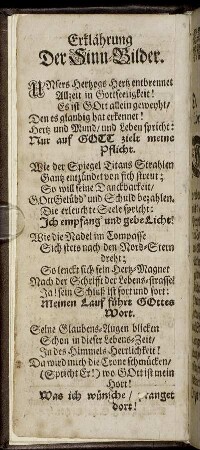 Erklährung
Der Sinn-Bilder.
UNsers Hertzogs Hertz entbrennet
Allzeit in Gottseeligkeit!
Es ist GOtt allein geweyht/
Den es glaubig hat erkennet!
Hertz und Mund/ und Leben spricht:
Nur auf GOTT zielt meine
Pflicht.
Wie der Spiegel Titans Strahlen
Gantz entzündet von sich streut;
So will seine Danckbarkeit/
GOtt Gelübd' und Schuld bezahlen.
Die erleuchte Seele spricht:
Ich empfang' und gebe Licht!
Wie die Nadel im Compasse
Sich stets nach dem Nord-Stern
dreht;
So lenckt sich sein Hertz-Magnet
Nach der Schrifft der Lebens-strasse!
Ja! sein Schluß ist fort und fort:
Meinen Lauf führt GOttes
Wort.
Seine Glaubens-Augen blicken
Schon in dieser Lebens-Zeit/
In des Himmels Herrlichkeit!
Da wird mich die Crone schmücken/
(Spricht Er!) wo GOtt ist mein
Hort!
Was ich wünsche/ pranget
dort!